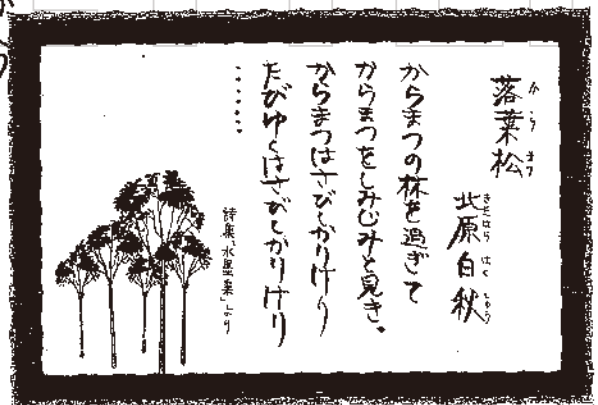 落葉松
からまつ
北原白秋
きたはら はくしゅう
からまつの林を過ぎて
からまつをしみじみと見き。
からまつはさびしかりけり
たびゆくはさびしかりけり
・・・・・・
詩集「水墨集」より